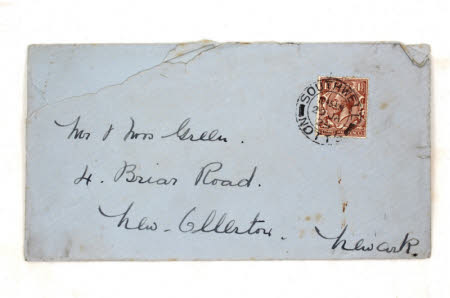 SOUTHWELL
NOTTS
Mr & Mrs Green.
4. Briar Road.
New-Ollerton.
Newark.